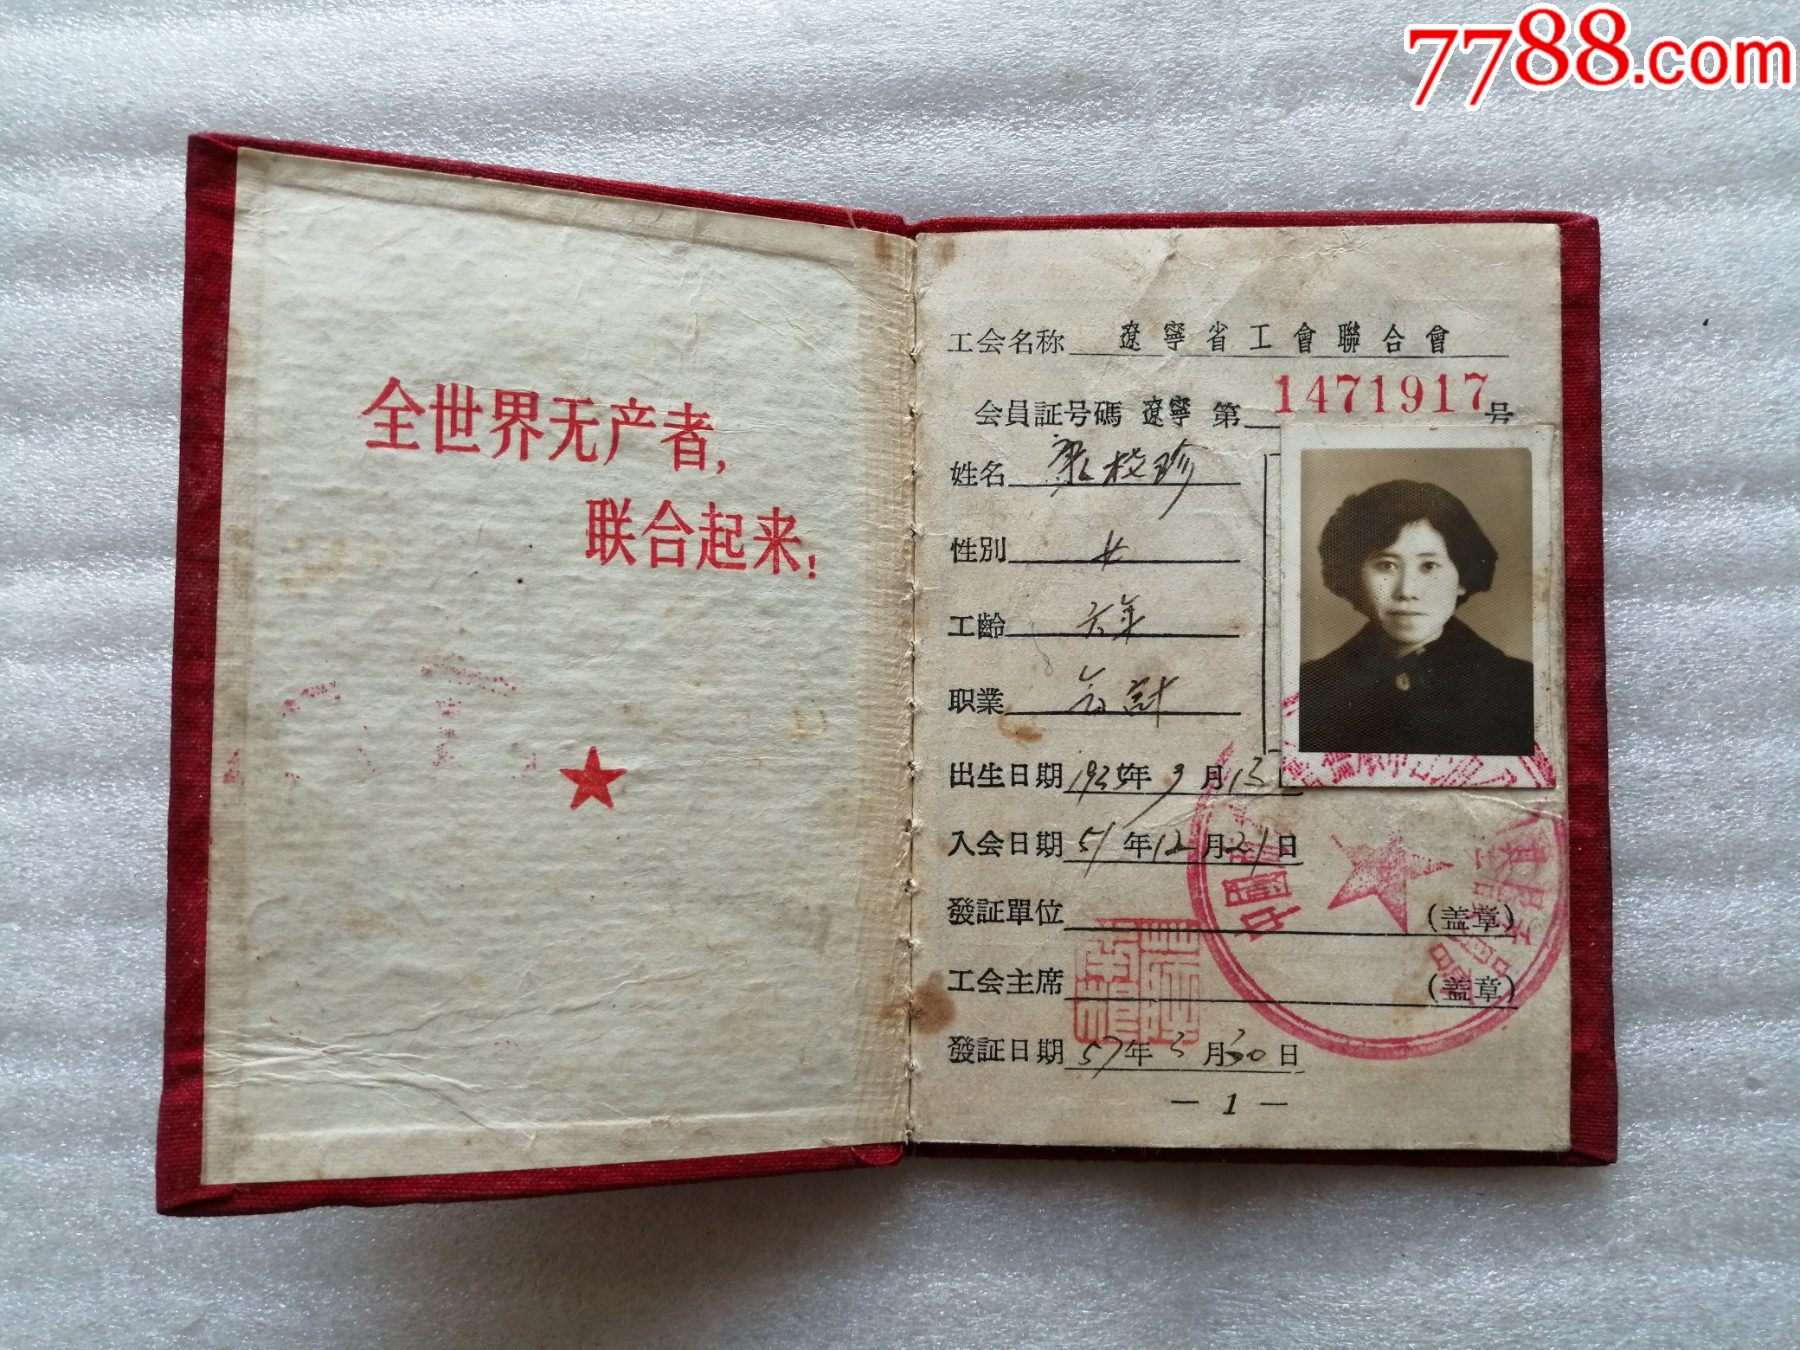 7788.com
全世界无产者,
联合起来!
工会名称 遼寧省工會聯合會
会員証号碼 遼寧 第1471917号
姓名
性别 女
工齡 六年
职業 会計
出生日期 1935年9月13
入会日期 51年12月21日
發証單位 (盖章)
工会主席 (盖章)
發証日期 57年3月30日
— 1 —
中國